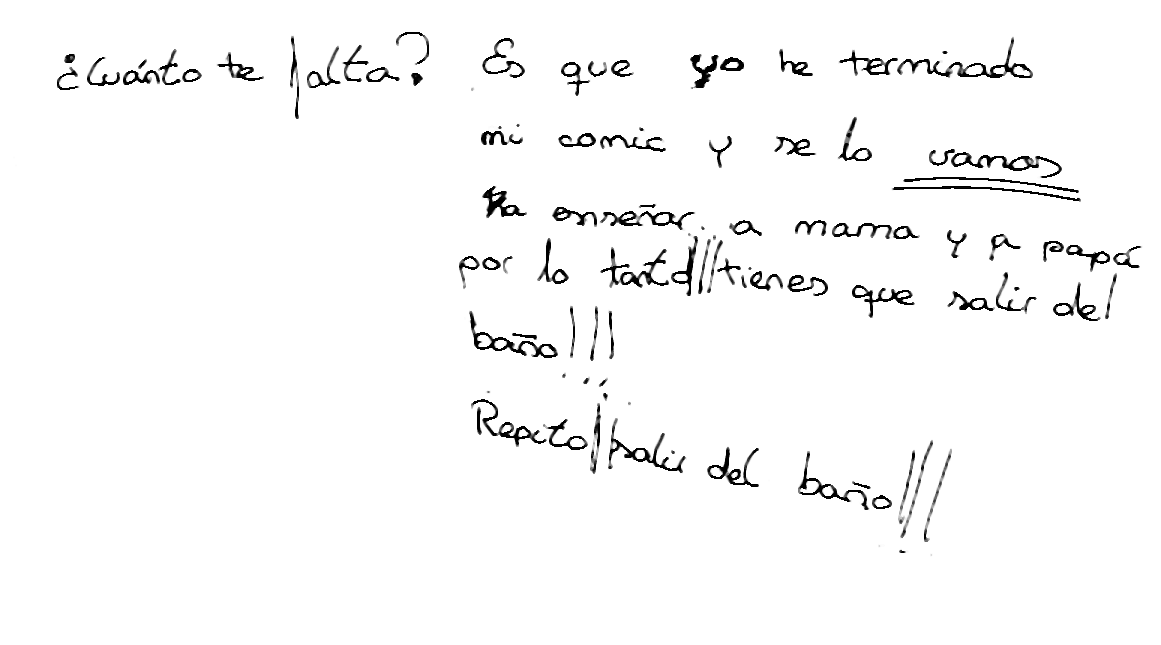 ¿Cuánto te falta? Es que yo he terminado
mi comic y se lo vamos
a enseñar a mama y a papá
por lo tanto!!! tienes que salir del
baño!!!
Repito!! salir del baño!!!